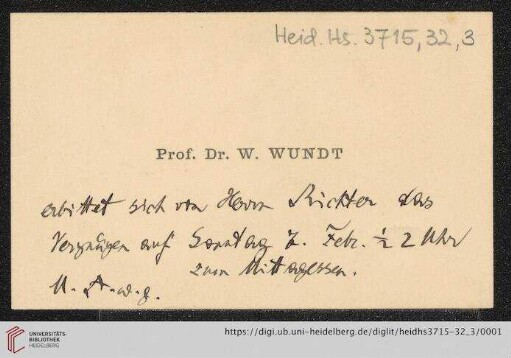 Heid. Hs. 3715,32,3
Prof. Dr. W. WUNDT
erbittet sich von Herrn Richter das
Vergnügen auf Sonntag 7. Febr. ½ 2 Uhr
zum Mittagessen.
U. A. w. g.
UNIVERSITÄTS-
BIBLIOTHEK
HEIDELBERG
https://digi.ub.uni-heidelberg.de/diglit/heidhs3715-32_3/0001